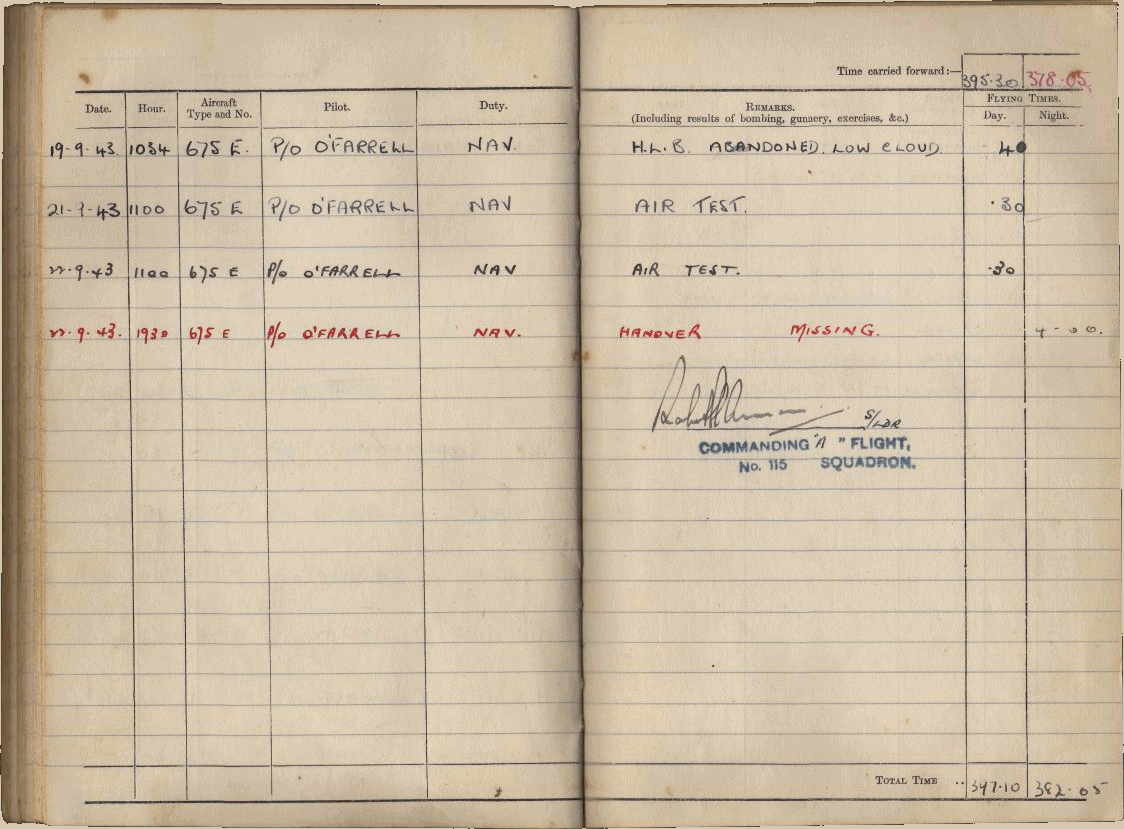 Time carried forward:— 395·30 378·05
Date. Hour. Aircraft Type and No. Pilot. Duty. REMARKS. (Including results of bombing, gunnery, exercises, &c.) FLYING TIMES. Day. Night.
19-9-43. 1034 675 E. P/O O'FARRELL NAV. H.L.B. ABANDONED. LOW CLOUD. 40
21-9-43 1100 675 E P/O O'FARRELL NAV AIR TEST. ·30
22·9·43 1100 675 E P/o O'FARRELL NAV AIR TEST. ·30
22·9·43. 1930 675 E P/o O'FARRELL NAV. HANOVER MISSING. 4-00.
S/LDR
COMMANDING "A" FLIGHT,
No. 115 SQUADRON.
TOTAL TIME .. 347·10 382·05